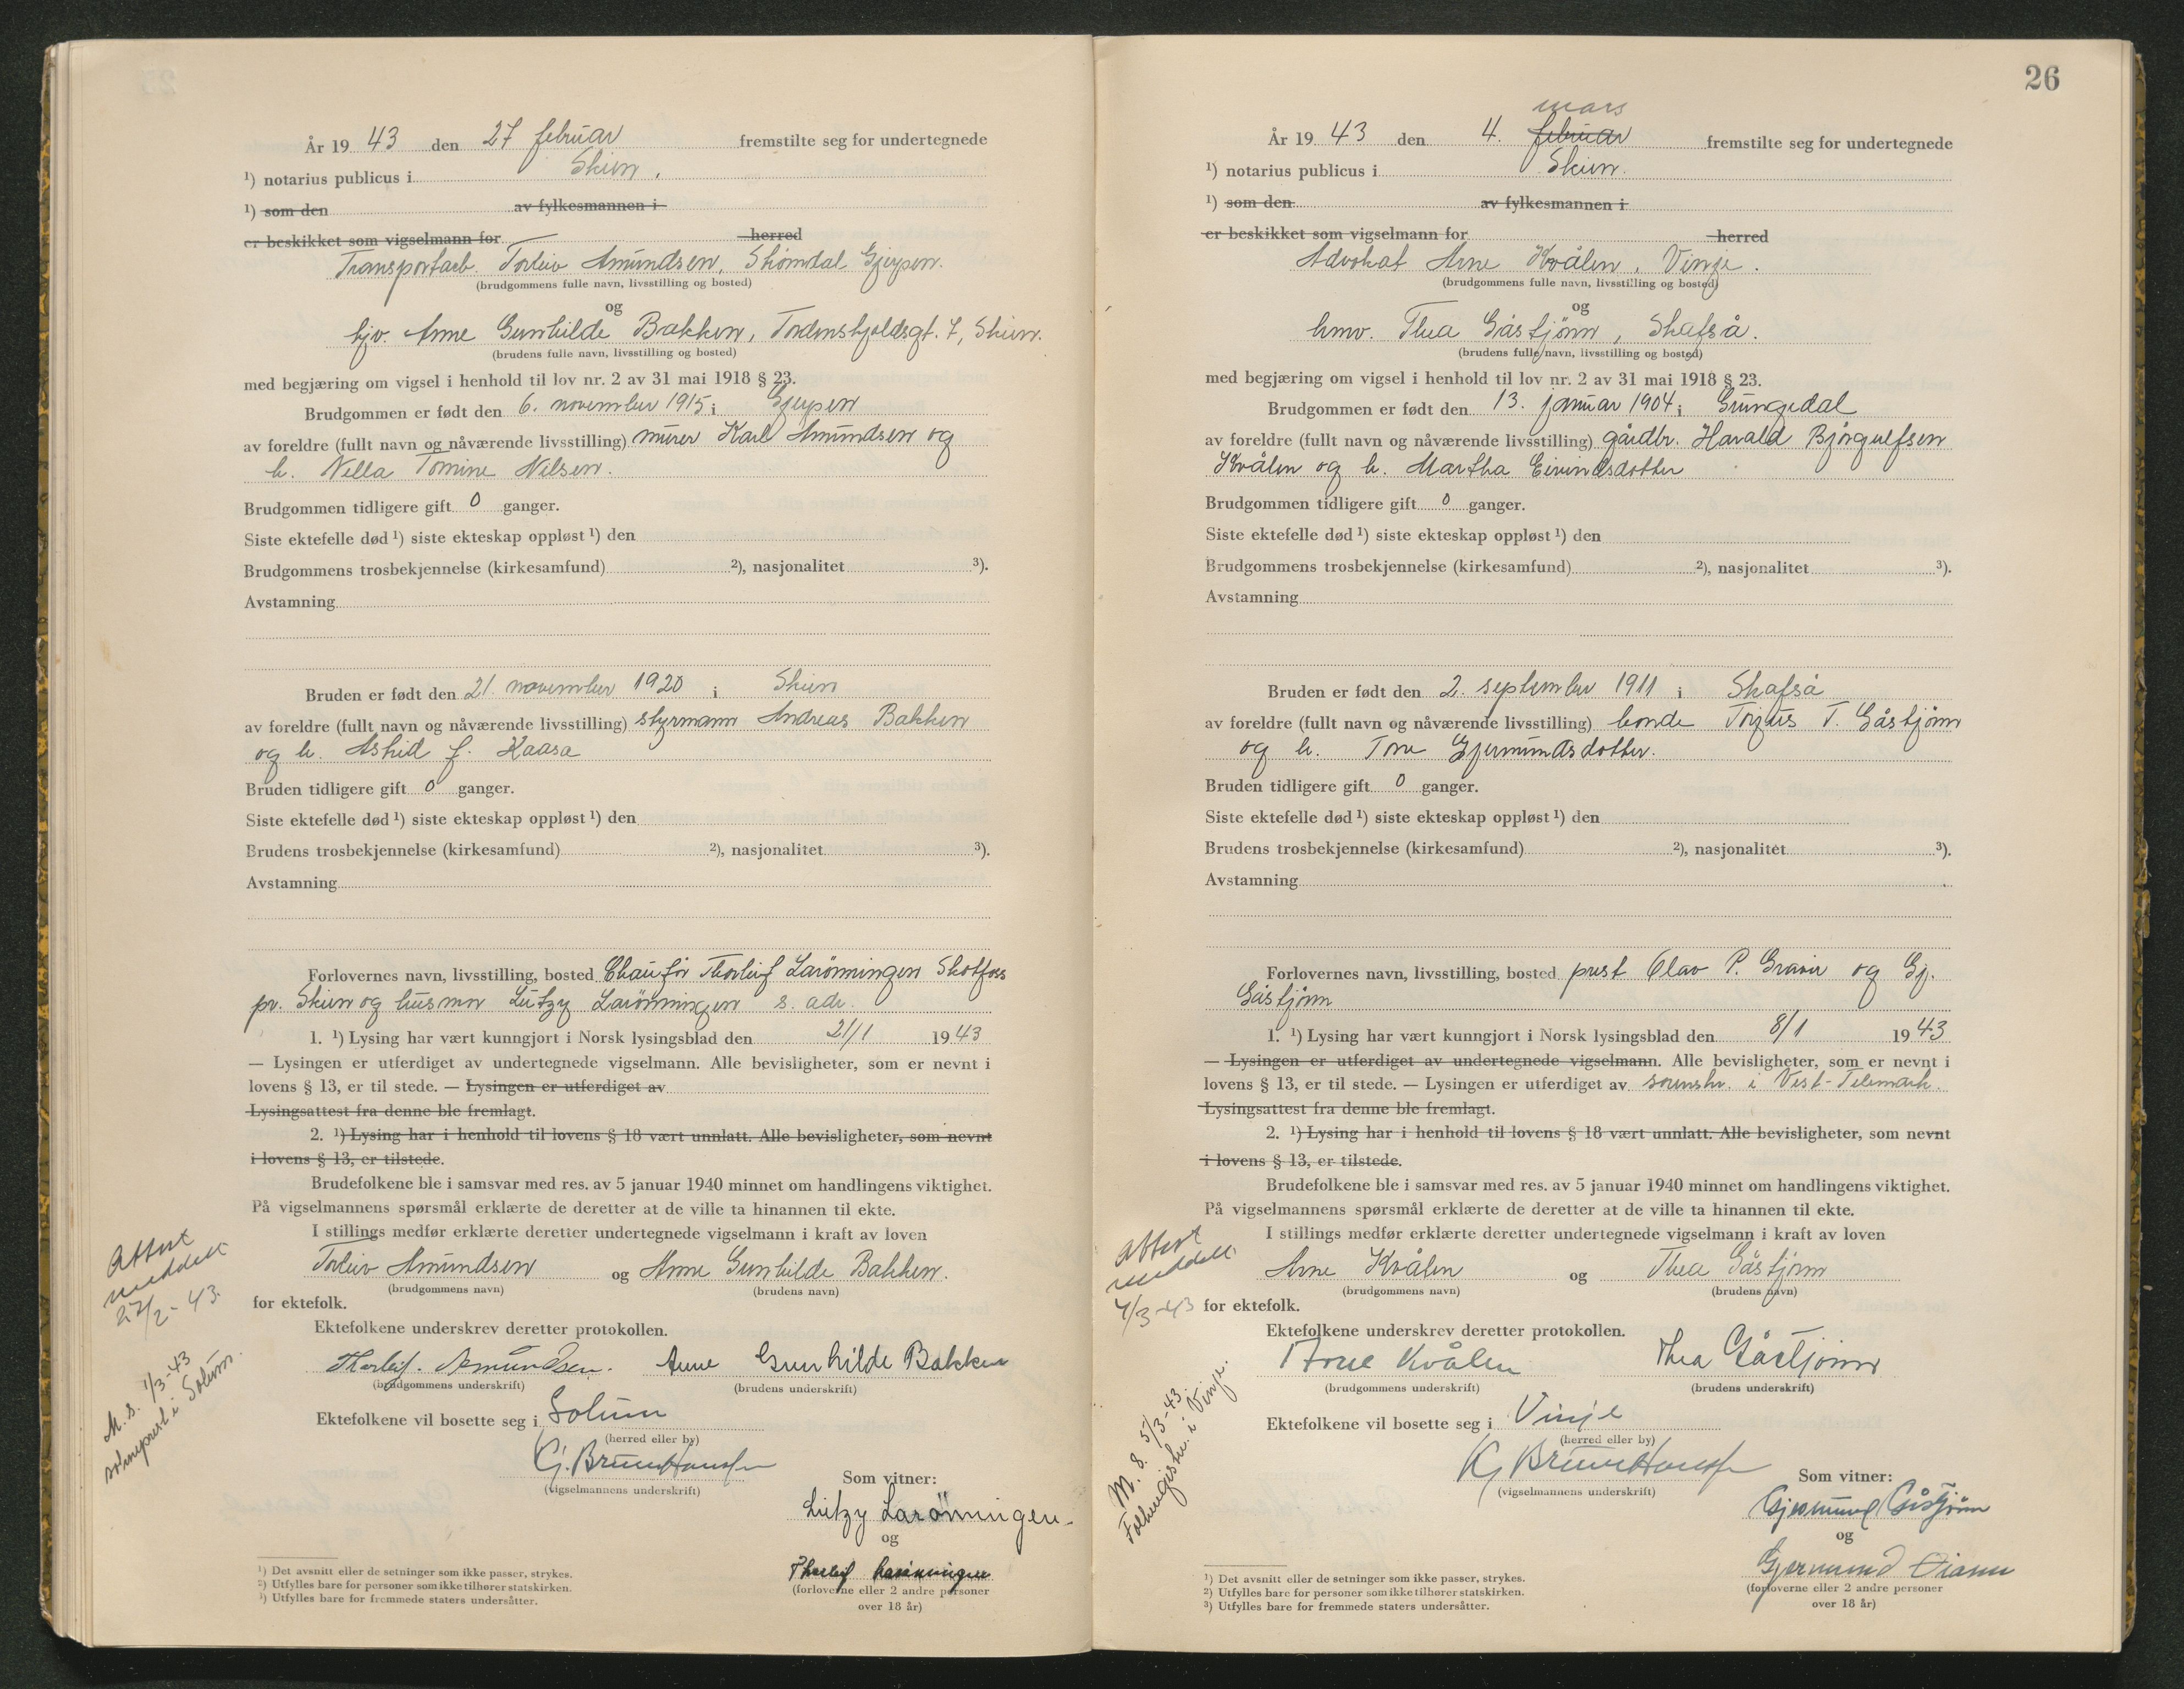 År 19 43 den 27 februar fremstilte seg for undertegnede
¹) notarius publicus i Skien,
¹) som den av fylkesmannen i
er beskikket som vigselmann for herred
Transportarb. Torleiv Amundsen, Skomdal Gjerpen.
(brudgommens fulle navn, livsstilling og bosted)
og
hjv. Anne Gunhilde Bakken, Tordenskjoldsgt. 7, Skien.
(brudens fulle navn, livsstilling og bosted)
med begjæring om vigsel i henhold til lov nr. 2 av 31 mai 1918 § 23.
Brudgommen er født den 6. november 1915 i Gjerpen
av foreldre (fullt navn og nåværende livsstilling) murer Karl Amundsen og
h. Nella Tomine Nilsen.
Brudgommen tidligere gift 0 ganger.
Siste ektefelle død ¹) siste ekteskap oppløst ¹) den
Brudgommens trosbekjennelse (kirkesamfund) ²), nasjonalitet ³).
Avstamning
Bruden er født den 21. november 1920 i Skien
av foreldre (fullt navn og nåværende livsstilling) styrmann Andreas Bakken
og h. Astrid f. Kaasa
Bruden tidligere gift 0 ganger.
Siste ektefelle død ¹) siste ekteskap oppløst ¹) den
Brudens trosbekjennelse (kirkesamfund) ²), nasjonalitet ³).
Avstamning
Forlovernes navn, livsstilling, bosted Chaufør Thorleif Larønningen Skotfoss
pr. Skien og husmor Lutzy Larønningen s. adr.
1. ¹) Lysing har vært kunngjort i Norsk lysingsblad den 21/1 19 43
— Lysingen er utferdiget av undertegnede vigselmann. Alle bevisligheter, som er nevnt i
lovens § 13, er til stede. — Lysingen er utferdiget av
Lysingsattest fra denne ble fremlagt.
2. ¹) Lysing har i henhold til lovens § 18 vært unnlatt. Alle bevisligheter, som nevnt
i lovens § 13, er tilstede.
Brudefolkene ble i samsvar med res. av 5 januar 1940 minnet om handlingens viktighet.
På vigselmannens spørsmål erklærte de deretter at de ville ta hinannen til ekte.
I stillings medfør erklærte deretter undertegnede vigselmann i kraft av loven
Torleiv Amundsen og Anne Gunhilde Bakken.
(brudgommens navn) (brudens navn)
for ektefolk.
Attest
meddelt
27/2-43.
Ektefolkene underskrev deretter protokollen.
Thorleif. Amundsen. Anne Gunhilde Bakken
(brudgommens underskrift) (brudens underskrift)
M. s. 1/3-43
sokneprest i Solum.
Ektefolkene vil bosette seg i Solum
(herred eller by)
(vigselmannens underskrift)
Som vitner:
Lutzy Larønningen
og
Thorleif Larønningen
(forloverne eller 2 andre personer
over 18 år)
¹) Det avsnitt eller de setninger som ikke passer, strykes.
²) Utfylles bare for personer som ikke tilhører statskirken.
³) Utfylles bare for fremmede staters undersåtter.
26
mars
År 19 43 den 4. februar fremstilte seg for undertegnede
¹) notarius publicus i Skien.
¹) som den av fylkesmannen i
er beskikket som vigselmann for herred
Advokat Arne Kvålen, Vinje.
(brudgommens fulle navn, livsstilling og bosted)
og
hmv. Thea Gåstjønn, Skafså.
(brudens fulle navn, livsstilling og bosted)
med begjæring om vigsel i henhold til lov nr. 2 av 31 mai 1918 § 23.
Brudgommen er født den 13. januar 1904 i Grungedal
av foreldre (fullt navn og nåværende livsstilling) gårdbr. Harald Bjørgulfsen
Kvålen og h. Martha Eivindsdotter
Brudgommen tidligere gift 0 ganger.
Siste ektefelle død ¹) siste ekteskap oppløst ¹) den
Brudgommens trosbekjennelse (kirkesamfund) ²), nasjonalitet ³).
Avstamning
Bruden er født den 2. september 1911 i Skafså
av foreldre (fullt navn og nåværende livsstilling) bonde Torjus T. Gåstjønn
og h. Tone Gjermundsdotter.
Bruden tidligere gift 0 ganger.
Siste ektefelle død ¹) siste ekteskap oppløst ¹) den
Brudens trosbekjennelse (kirkesamfund) ²), nasjonalitet ³).
Avstamning
Forlovernes navn, livsstilling, bosted prest Olav P. Graver og Gj.
Gåstjønn
1. ¹) Lysing har vært kunngjort i Norsk lysingsblad den 8/1 19 43
— Lysingen er utferdiget av undertegnede vigselmann. Alle bevisligheter, som er nevnt i
lovens § 13, er til stede. — Lysingen er utferdiget av sorenskr. i Vest-Telemark.
Lysingsattest fra denne ble fremlagt.
2. ¹) Lysing har i henhold til lovens § 18 vært unnlatt. Alle bevisligheter, som nevnt
i lovens § 13, er tilstede.
Brudefolkene ble i samsvar med res. av 5 januar 1940 minnet om handlingens viktighet.
På vigselmannens spørsmål erklærte de deretter at de ville ta hinannen til ekte.
I stillings medfør erklærte deretter undertegnede vigselmann i kraft av loven
Arne Kvålen og Thea Gåstjønn
(brudgommens navn) (brudens navn)
for ektefolk.
Attest
meddelt
4/3-43
Ektefolkene underskrev deretter protokollen.
Arne Kvålen Thea Gåstjønn
(brudgommens underskrift) (brudens underskrift)
M. s. 5/3-43
Folkeregisteret i Vinje.
Ektefolkene vil bosette seg i Vinje
(herred eller by)
(vigselmannens underskrift)
Som vitner:
Gjermund Gåstjønn
og
Gjermund
(forloverne eller 2 andre personer
over 18 år)
¹) Det avsnitt eller de setninger som ikke passer, strykes.
²) Utfylles bare for personer som ikke tilhører statskirken.
³) Utfylles bare for fremmede staters undersåtter.